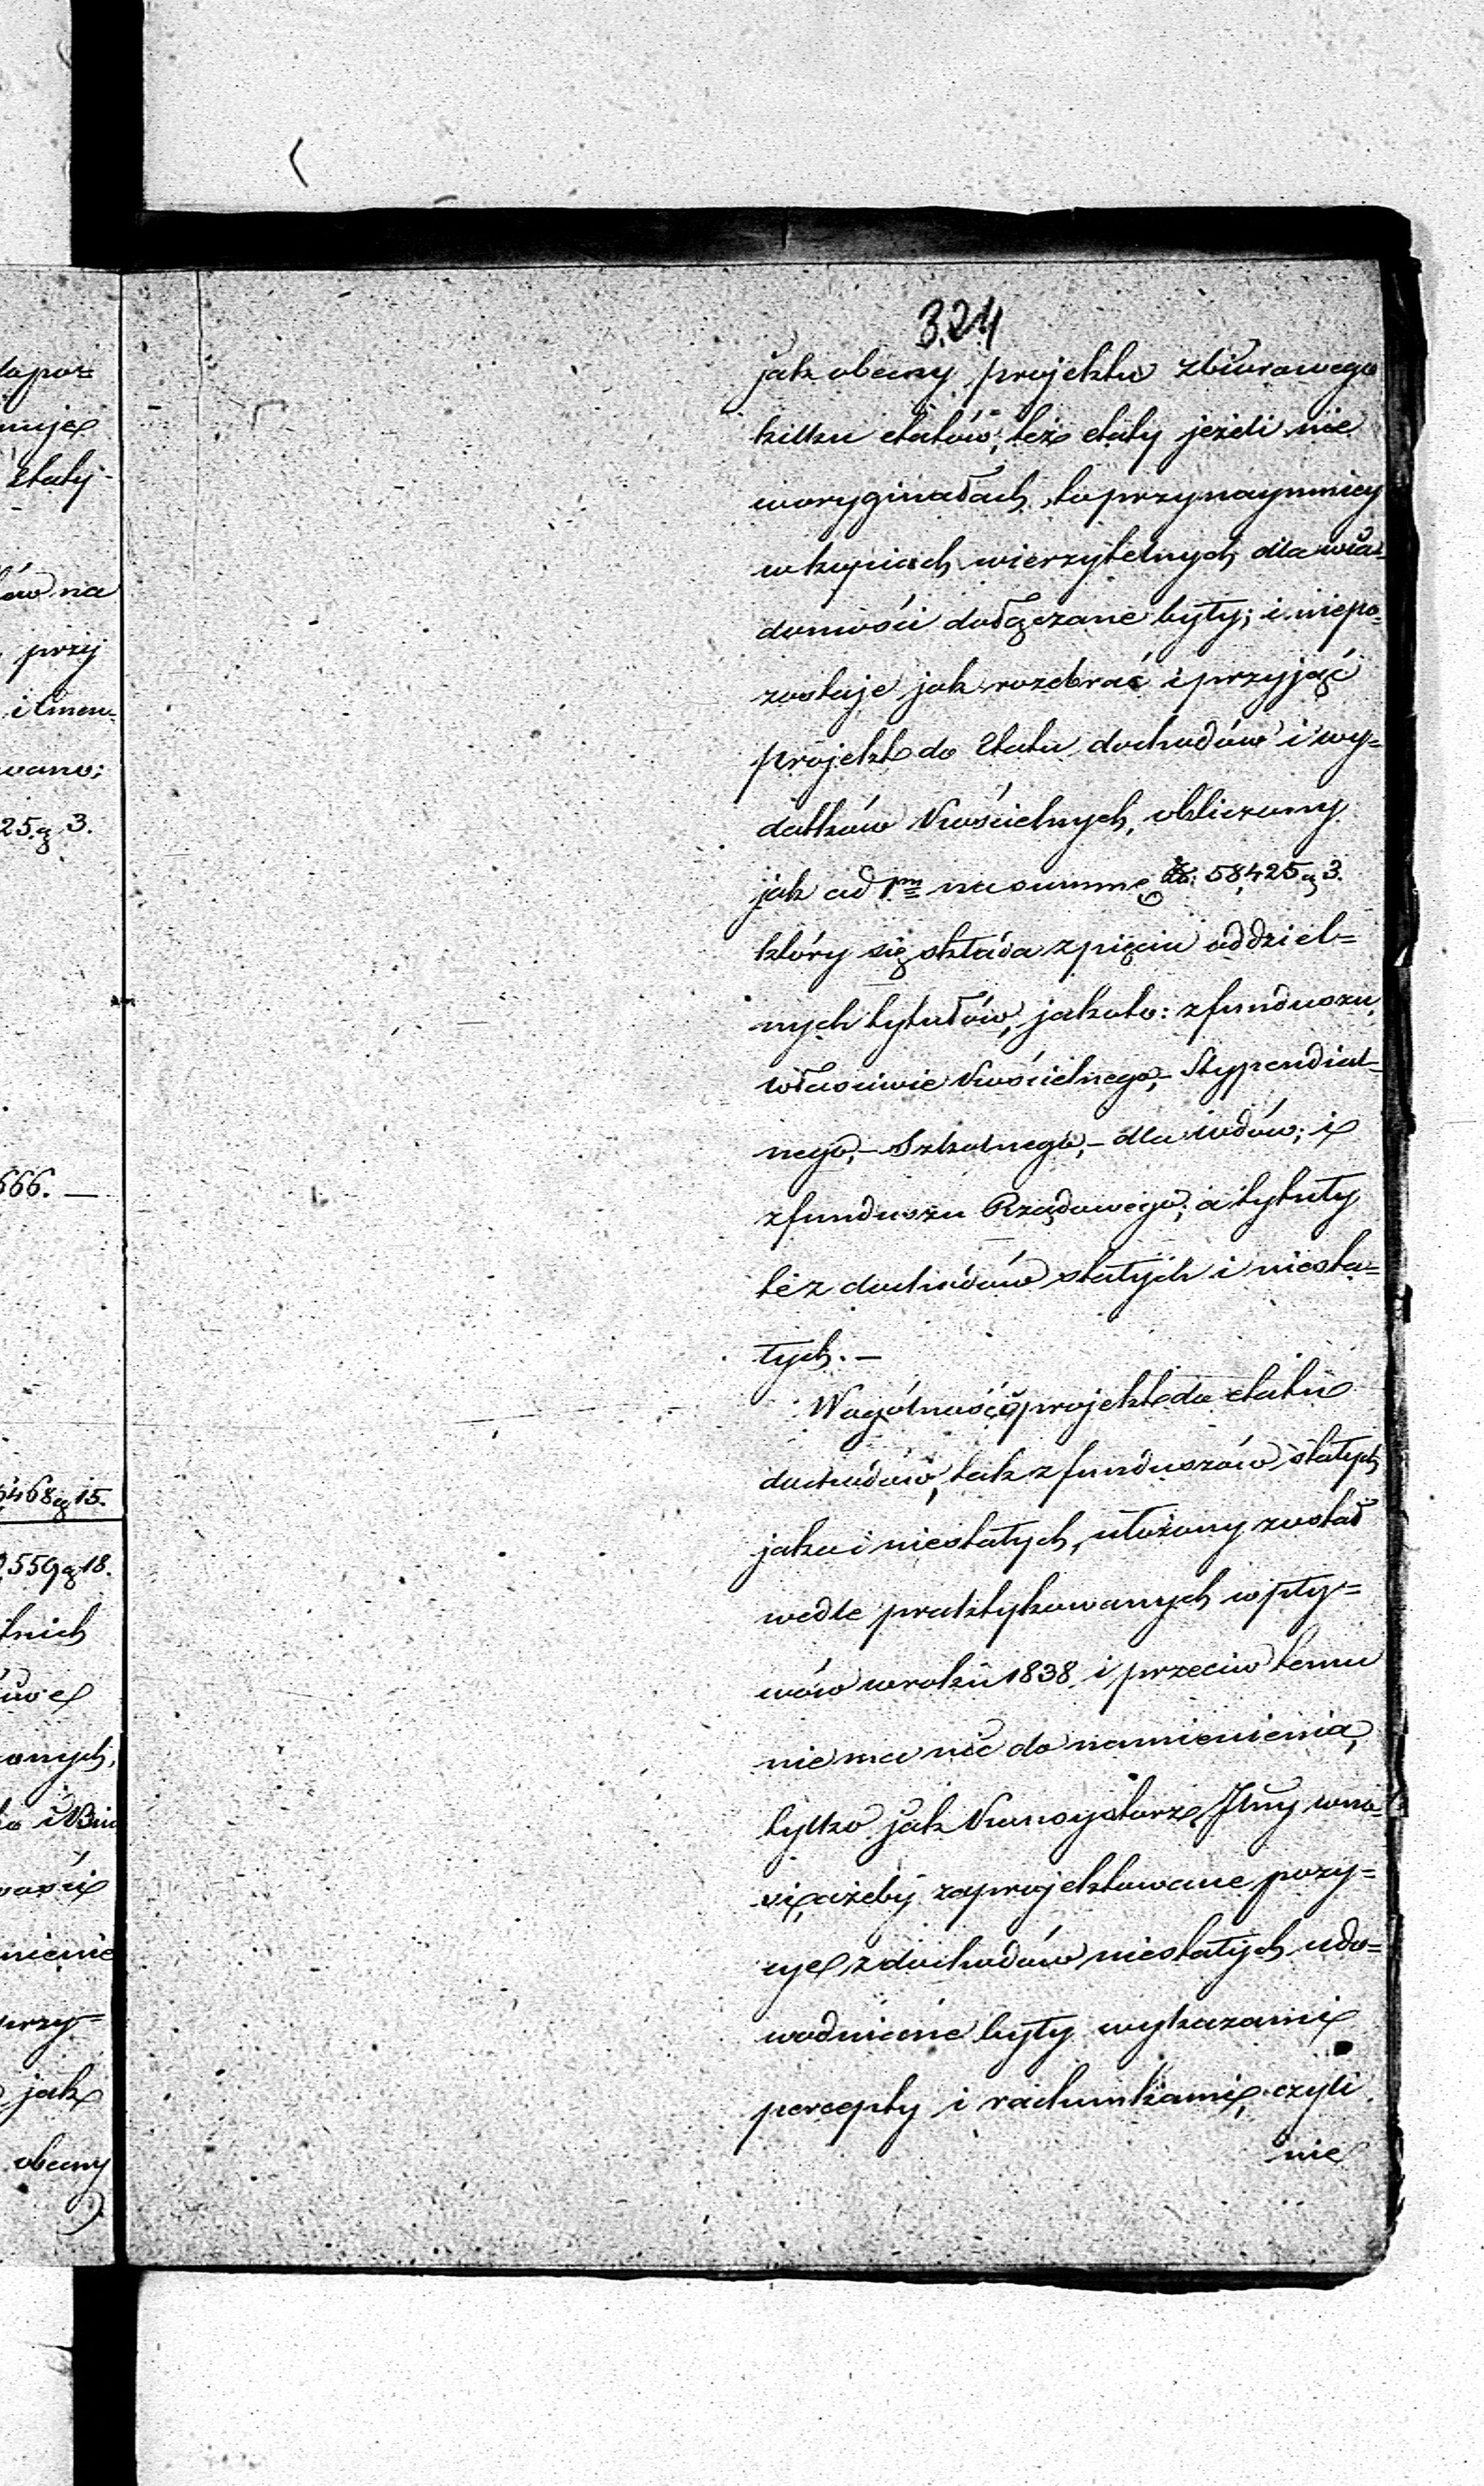 324
jak obecny projektu zbiorowego
kilku etatów; też etaty jeżeli nie
w oryginałach, to przynaymniey
w kopiach wierzytelnych dla wia-
domości dołączane były; i niepo-
zostaje jak rozebrać i przyjąć
projekt do Etatu dochodów i wy=
datków Kościelnych, obliczony
jak ad 1m na summę Zł: 58,425 g 3.
który się składa z pięciu oddziel=
nych tytułów, jakoto: z funduszu
właściwie Kościelnego,- Stypendial-
nego,- Szkolnego,- dla wdów; i
z funduszu Rządowego; a tytuły
też z dochodów stałych i niesta=
łych. —
W ogólności projekt do etatu
dochodów, tak z funduszów stałych
jako i niestałych, ułożony został
wedle praktykowanych wpły=
wów w roku 1838 i przeciw temu
nie ma nic do namienienia,
tylko jak Konsystorz Jlny wno-
si, ażeby zaprojektowane pozy=
cye z dochodów niestałych udo=
wodnione były wykazami
percepty i rachunkami, czyli
nie
dopor=
muje
Etaty
ów na
przy
i Emen-
wano:
25. g 3.
666. —
468 g 15.
559 g 18.
onych,
nienie
przy=
jak
obecny